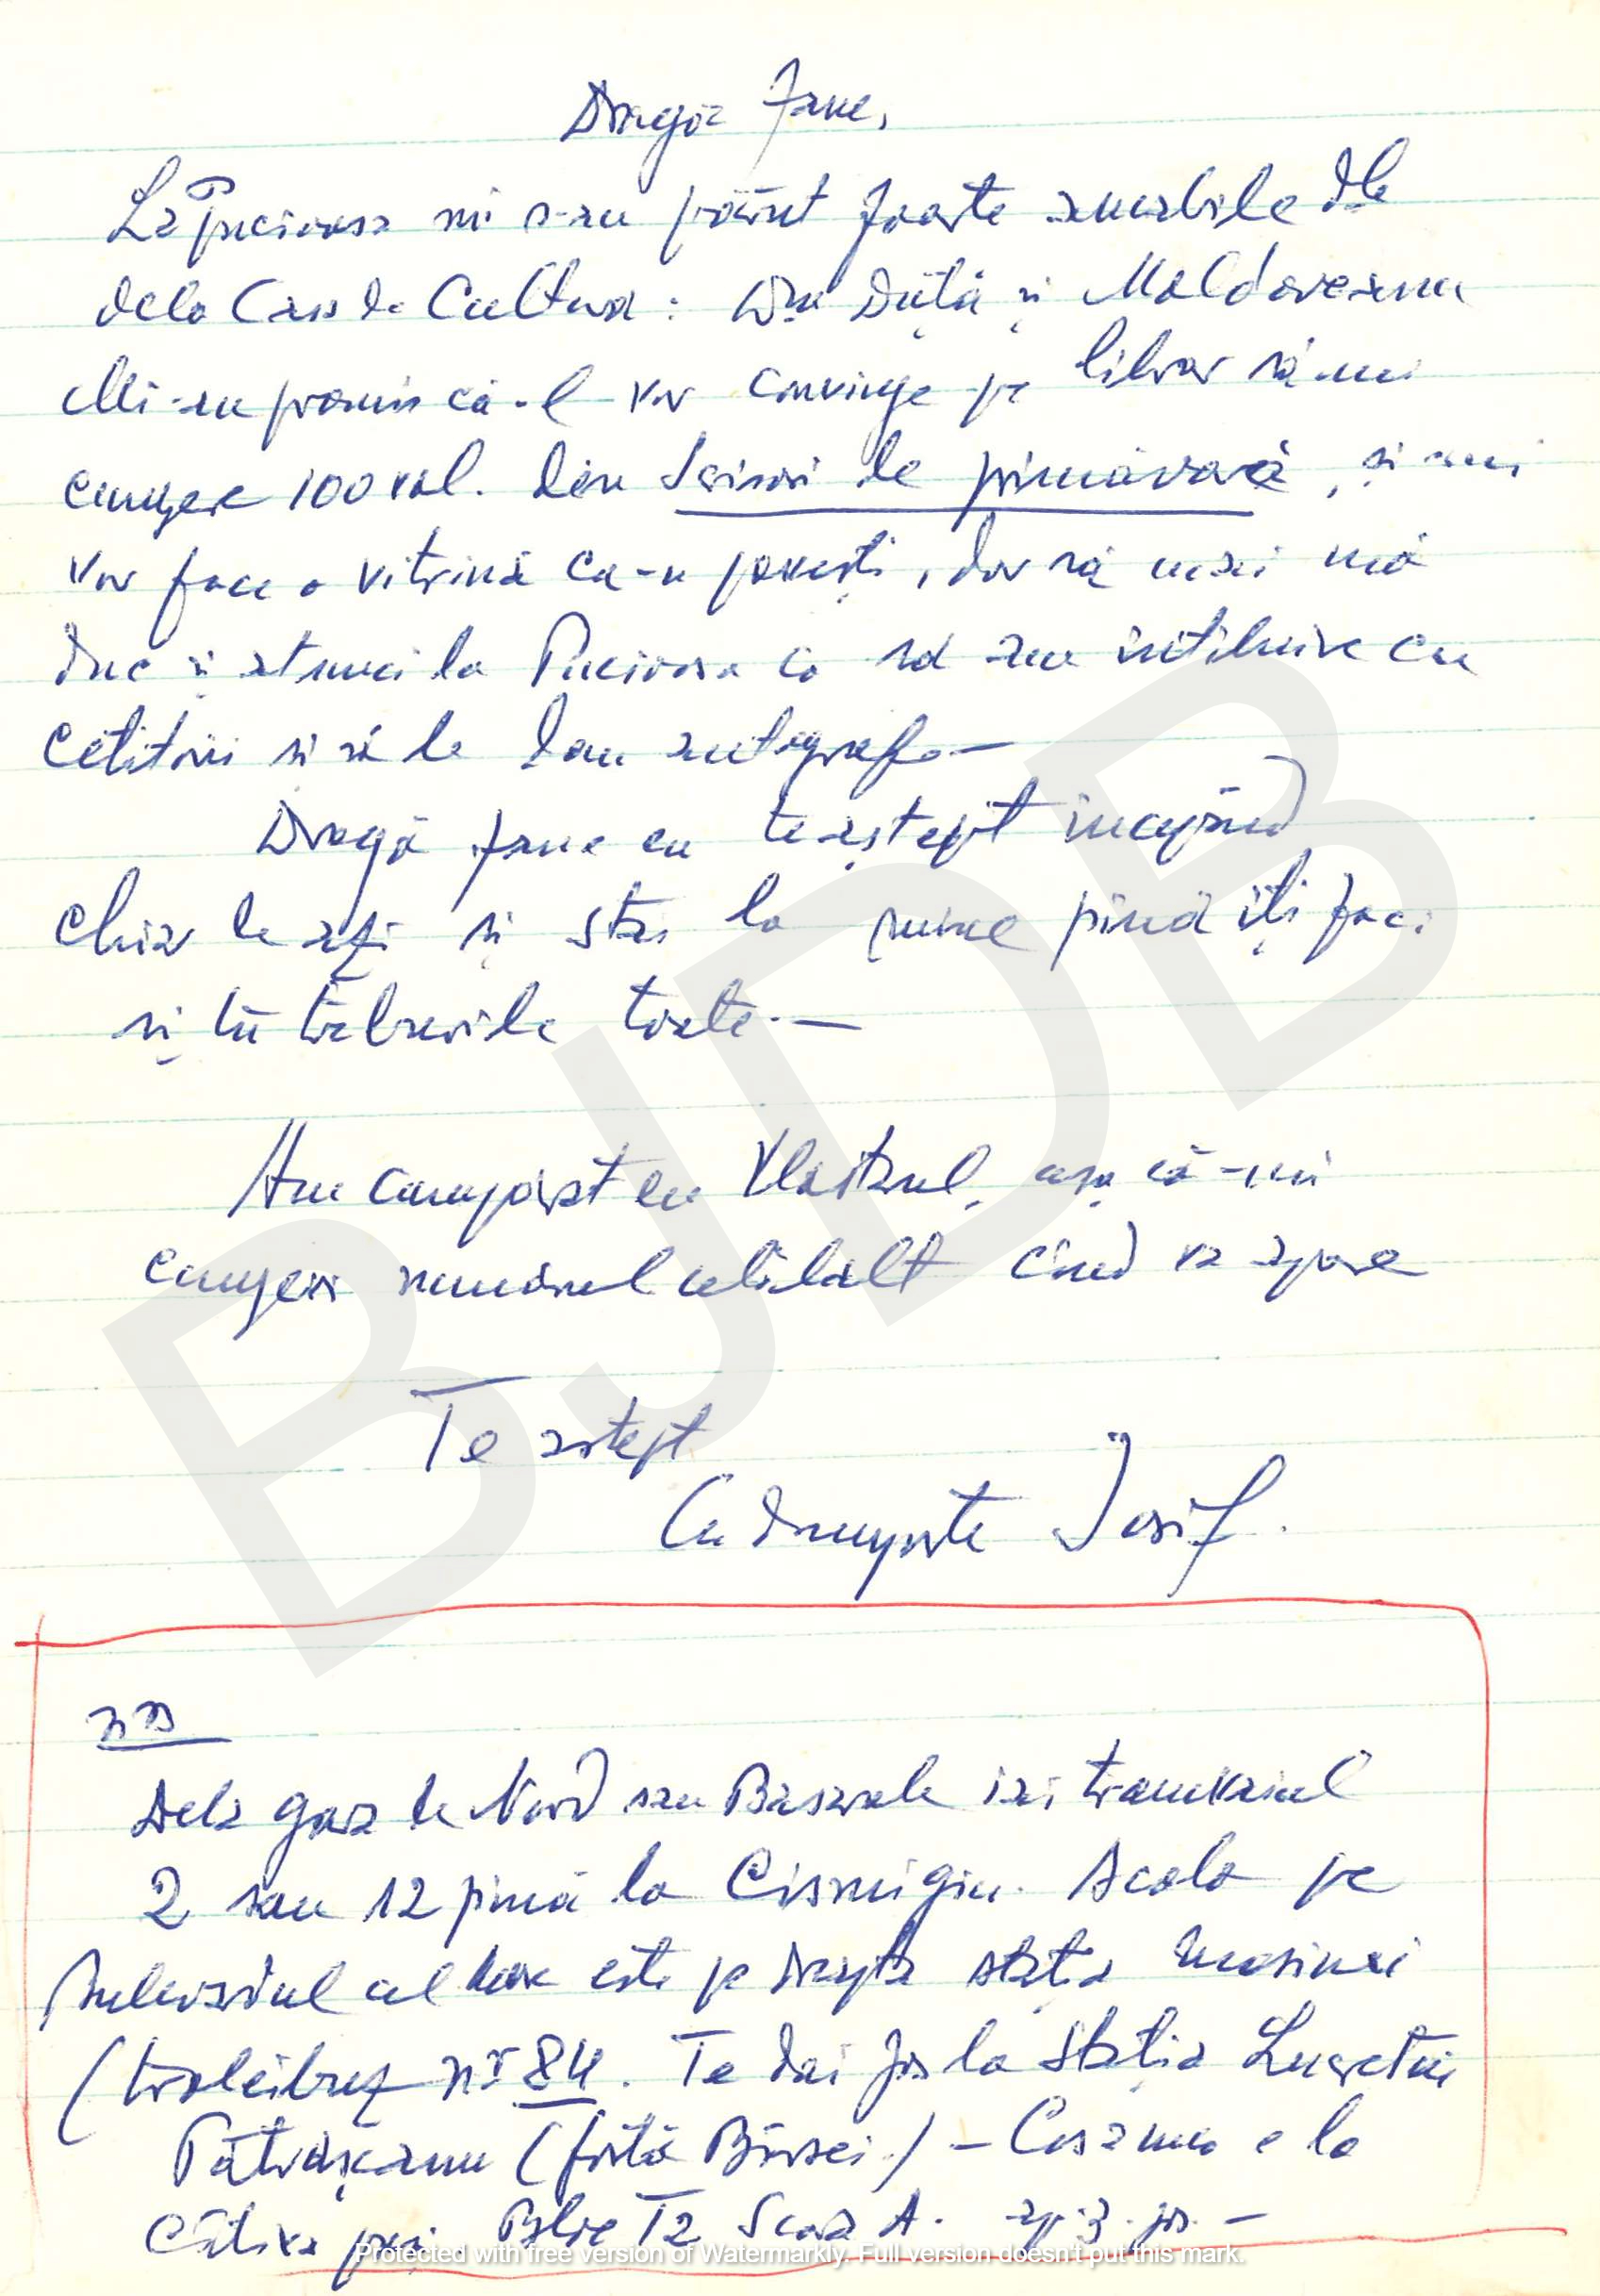 Dragă Jane,
La Pucioasa mi s-au părut foarte amabile dle
dela Casa de Cultură: Dra Duță și Moldoveanu
Mi-au promis că-l vor convinge pe librar să-mi
cumpere 100 vol. din Scrisori de primăvară, și-mi
vor face o vitrină ca-n povești, dar să mai mă
duc și atunci la Pucioasa ca să am întîlnire cu
cetitorii și să le dau autografe—
Dragă Jane eu te-aștept începînd
chiar de azi și stai la mine pînă îți faci
și tu treburile toate.—
Am cumpărat eu Vlăstarul, așa că-mi
cumperi numărul celălalt cînd va apare
Te aștept
Cu dragoste Iosif.
Dela gara de Nord sau Basarab iei tramvaiul
2 sau 12 pînă la Cismigiu. Acolo pe
Bulevardul cel mare este pe dreapta stația mașinei
(troleibuz nr 84. Te dai jos la stația Lucrețiu
Pătrășcanu (fostă Bîrsei) — Casa mea e la
cîțiva pași Bloc T2 Scara A. ap. 3. jos. —
Protected with free version of Watermarkly. Full version doesn't put this mark.
BJDB